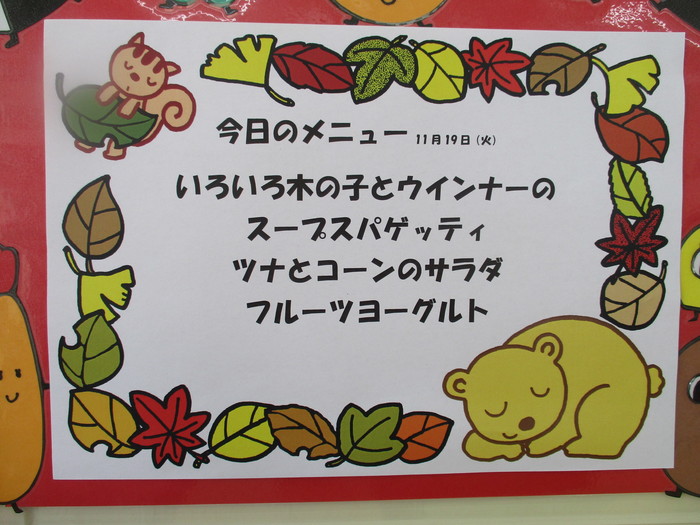 今日のメニュー 11月19日(火)
いろいろ木の子とウインナーの
スープスパゲッティ
ツナとコーンのサラダ
フルーツヨーグルト